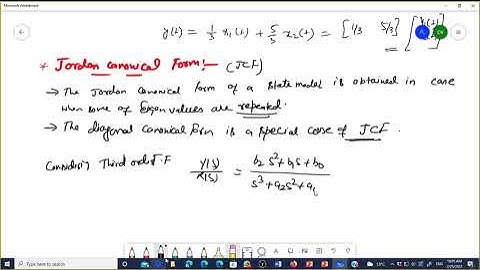 Microsoft Whiteboard
y(t) = 1/3 x₁(t) + 5/3 x₂(t) = [1/3 5/3]
* Jordan canonical Form:- (JCF)
→ The Jordan canonical form of a state model is obtained in case
when some of Eigen values are repeated.
→ The diagonal canonical form is a special case of JCF.
Considering Third order T.F Y(s)/R(s) = b₂ s² + b₁s + b₀ / s³ + a₂s² + a₁
ENG